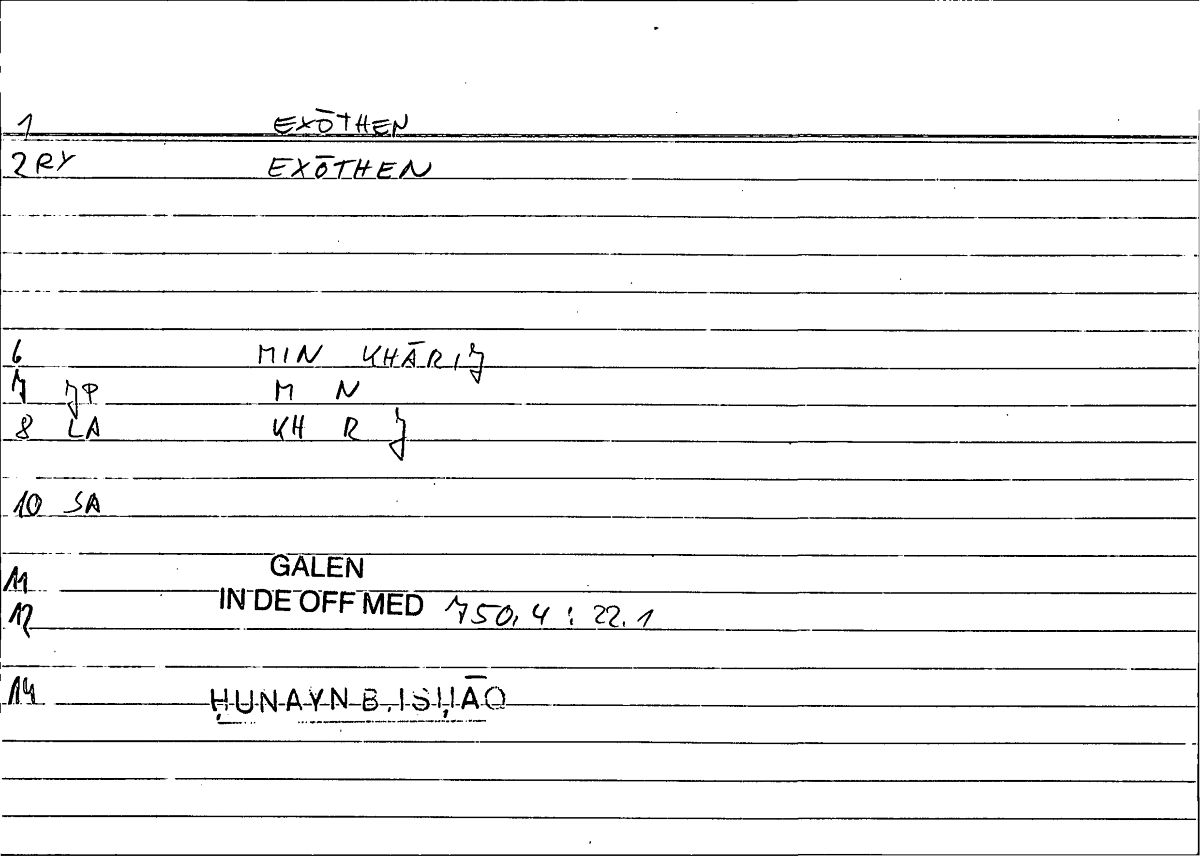 1 EXŌTHEN
2 RY EXŌTHEN
6 MIN KHĀRIJ
7 JP M N
8 LA KH R J
10 SA
11 GALEN
12 IN DE OFF MED 750,4 : 22.1
14 ḤUNAYN B. ISḤĀQ